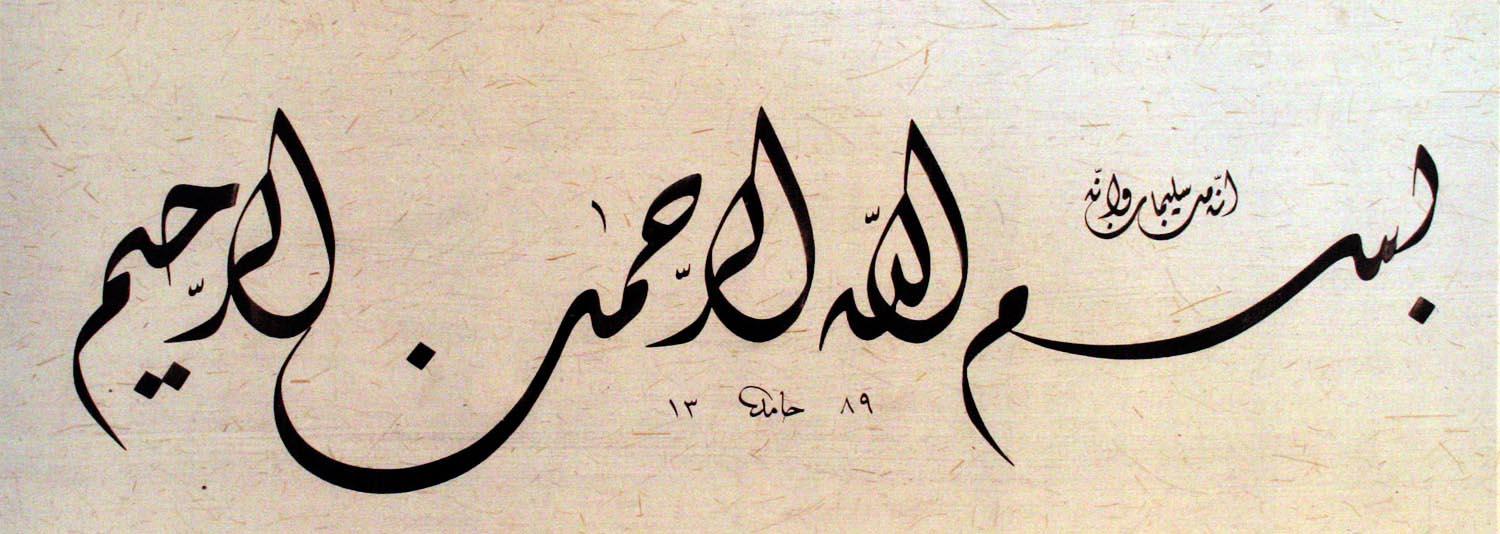 انّه من سليمان وانّه
بسم اللّه الرّحمن الرّحيم
٨٩ حامد ١٣